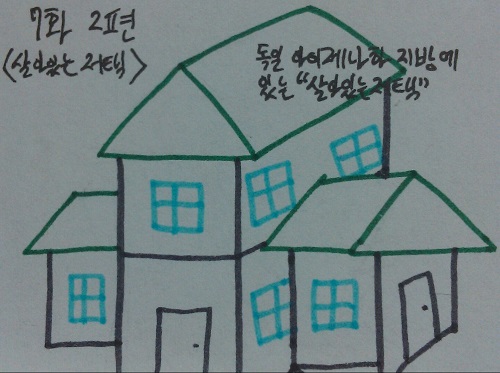 7화 2편
<살아있는 저택>
독일 아이제나하 지방에
있는 "살아있는저택"